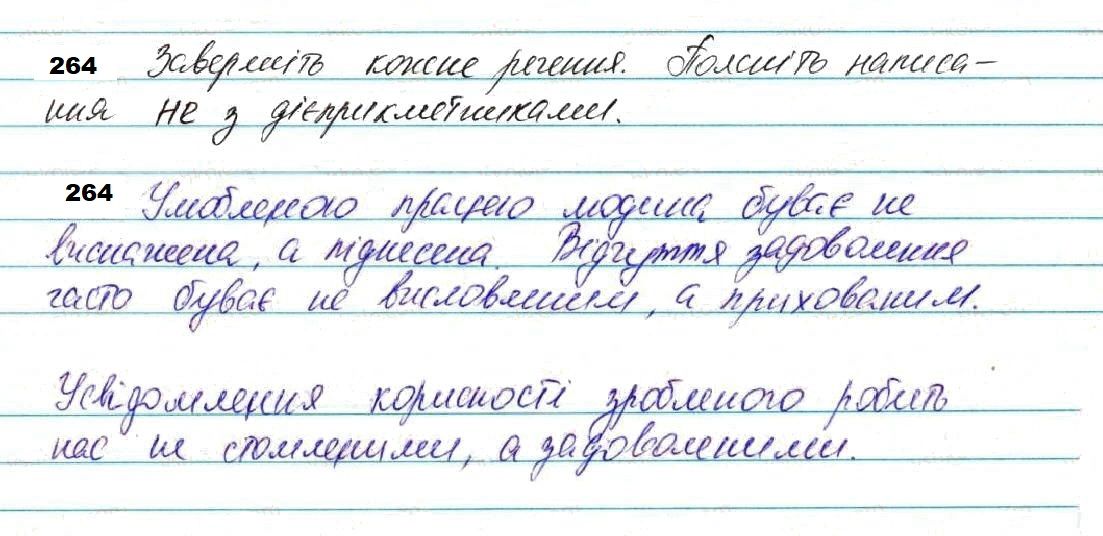 264 Завершіть кожне речення. Поясніть написа-
ння не з дієприкметниками.
264 Улюбленою працею людина буває не
виснажена, а піднесена. Відчуття задоволення
часто буває не висловленим, а прихованим.
Усвідомлення корисності зробленого робить
нас не стомленими, а задоволеними.